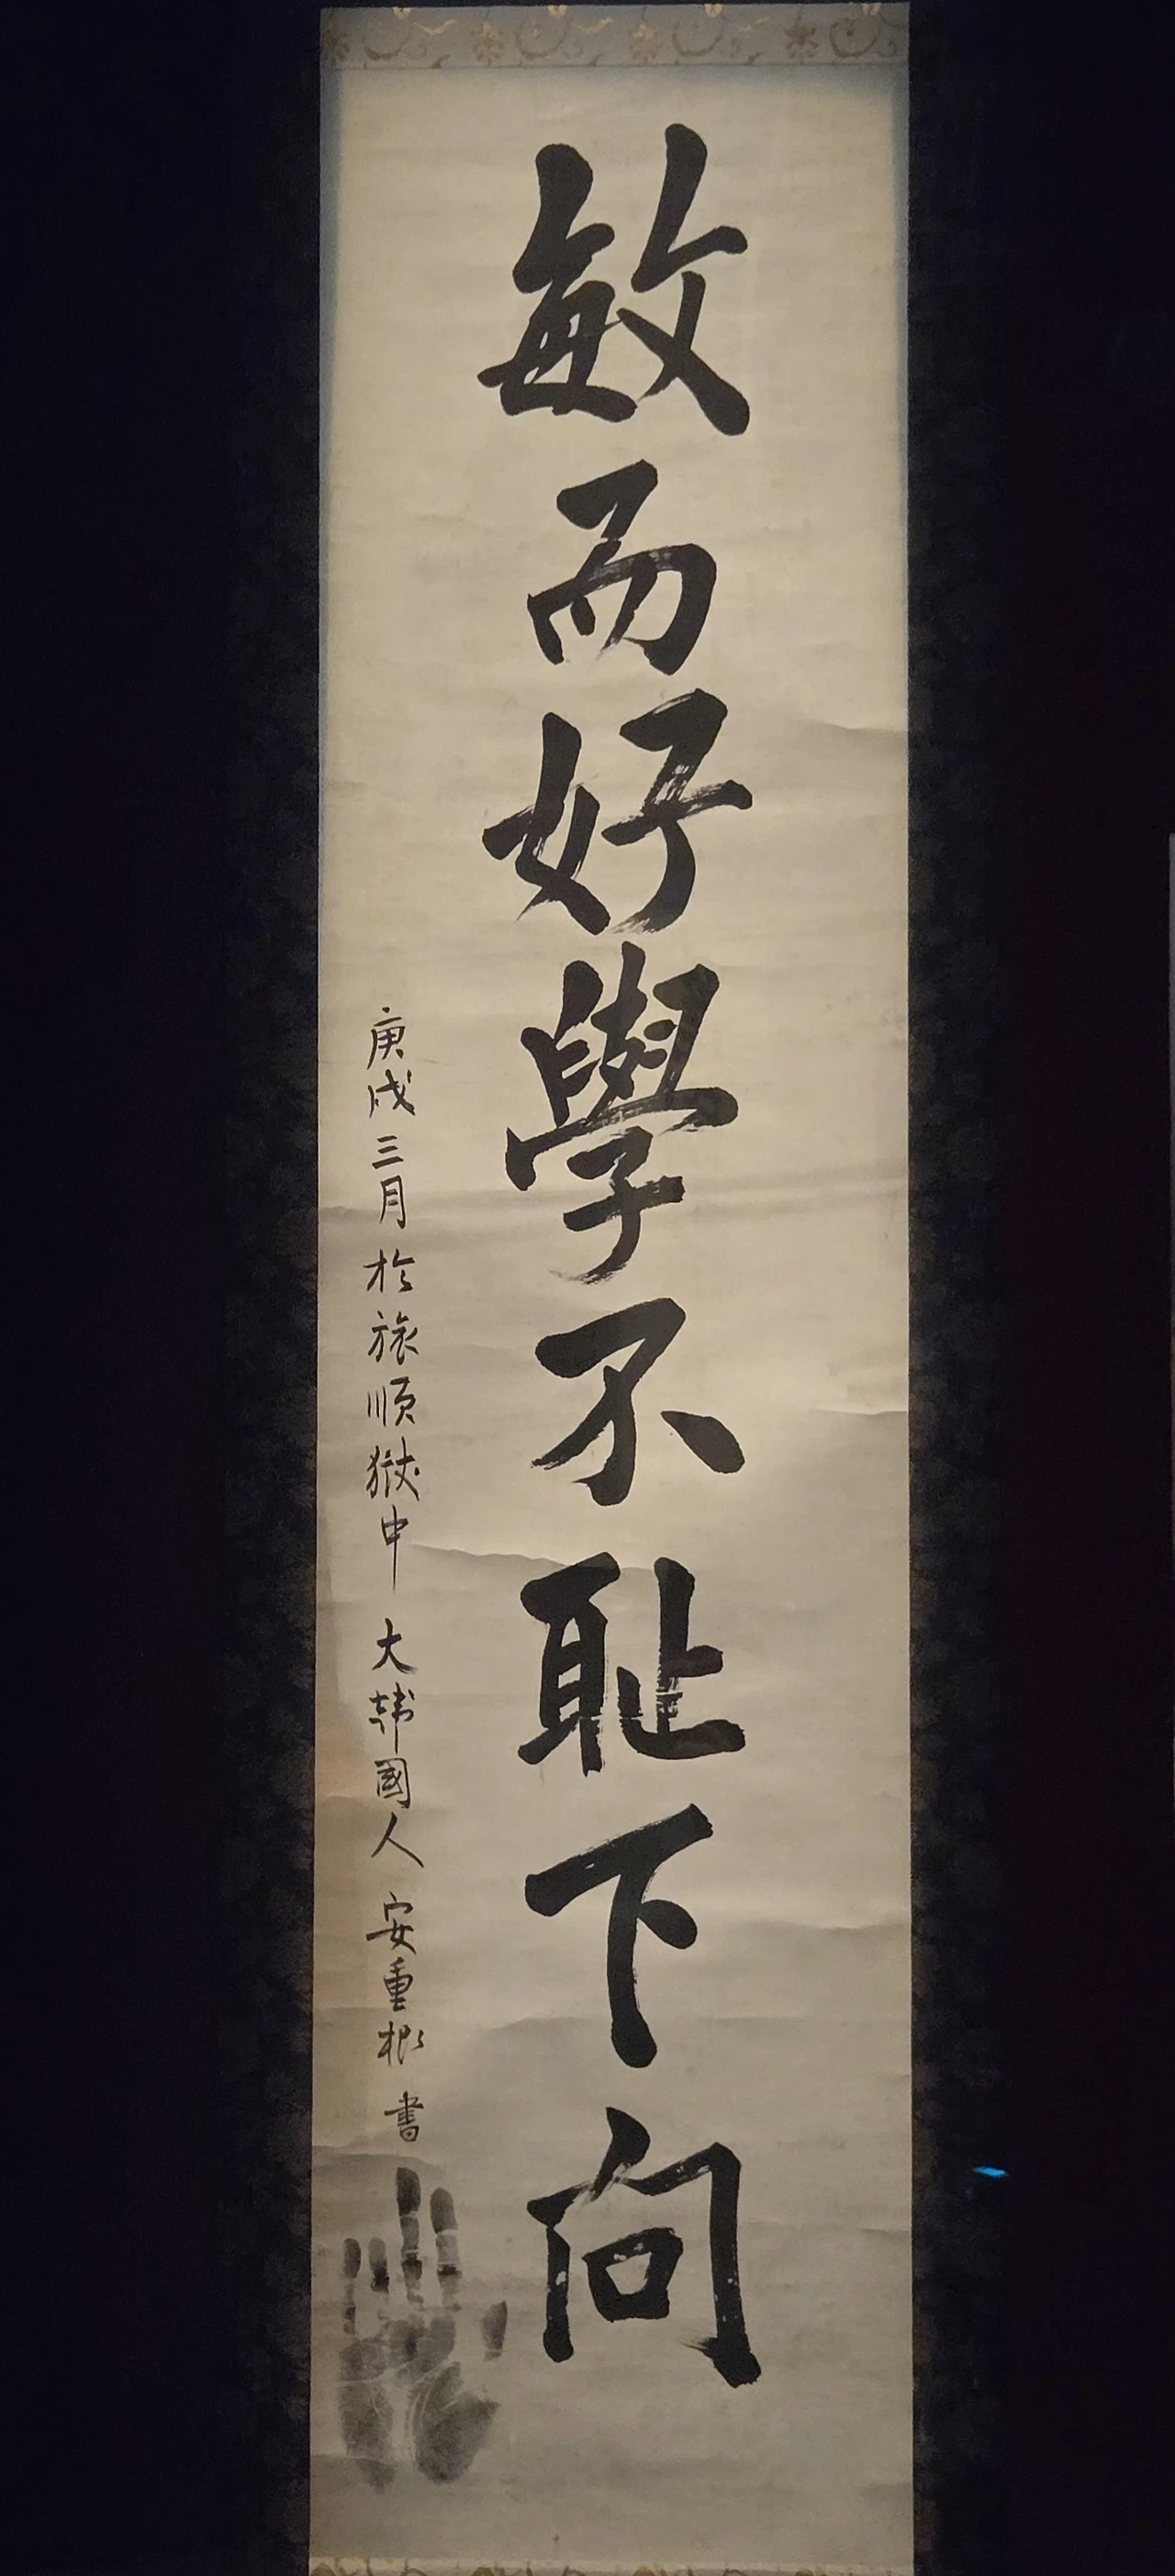 敏而好學不耻下問
庚戌三月 於旅順獄中 大韓國人 安重根 書